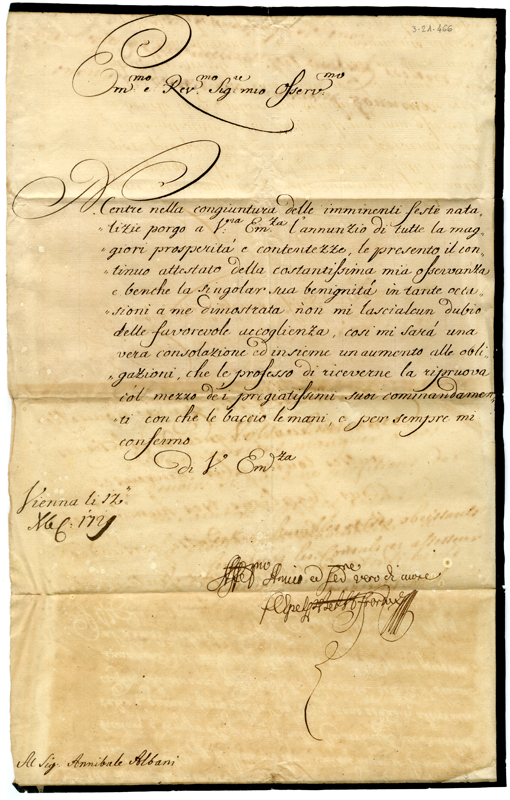 3-2A-466
Em.mo e Rev.mo Sig.re mio Osserv.mo
Mentre nella congiuntura delle imminenti feste nata"
"lizie porgo a V.ra Em.za l'annunzio di tutte la mag"
"giori prosperitá e contentezze, le presento il con"
"tinuo attestato della costantissima mia osservanza
e benche la singolar sua benignitá in tante occa"
"sioni a me dimostrata non mi lascialcun dubio
delle favorevole accoglienza, cosi mi sará una
vera consolazione ed insieme un aumento alle obli"
"gazioni, che le professo di riceverne la ripruova
col mezzo dei pregiatissimi suoi commandamen"
ti con che le baccio le mani, e per sempre mi
confermo
Di V.a Em.za
Vienna li 12"
Xbre. 172
Amico ed vero di cuore
Al Sig. Annibale Albani